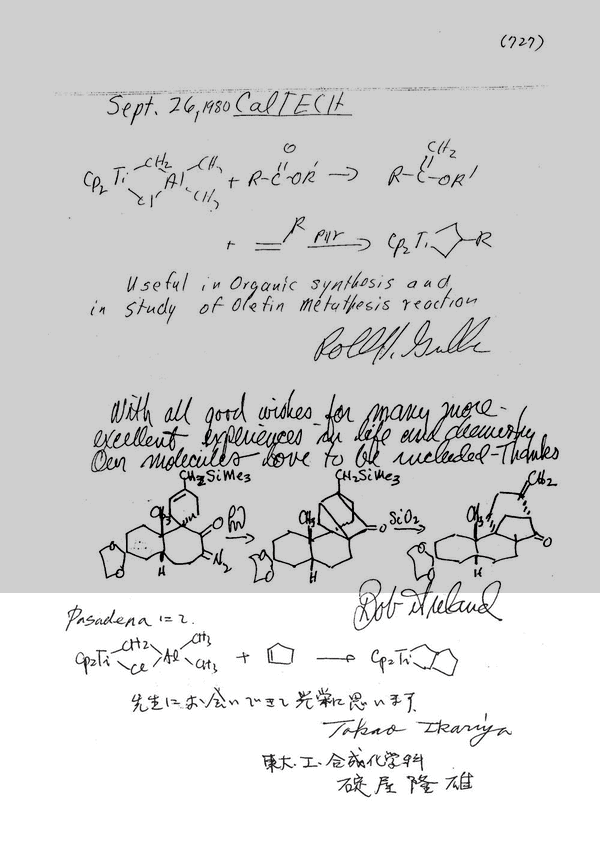 (727)
Sept. 26, 1980 CalTECH
Cp2 Ti CH2 Al CH3 CH3 Cl + R-C-OR' O → R-C-OR' CH2
+ R pyr → Cp2 Ti R
Useful in Organic synthesis and
in study of Olefin Metathesis reaction
With all good wishes for many more
excellent experiences in life and chemistry
Our molecules love to be included - Thanks
CH2SiMe3 CH2SiMe3 CH2
CH3 O hν CH3 O SiO2 CH3 O
O O N2 H O O H O O H
Bob Ireland
Pasadena にて.
Cp2Ti CH2 Cl Al CH3 CH3 + → Cp2Ti
先生にお会いできて光栄に思います.
Takao Ikariya
東大.工.合成化学科
碇屋 隆雄